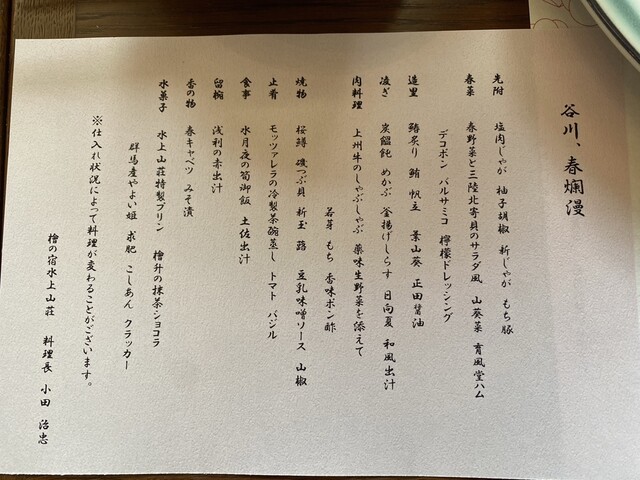 谷川、春爛漫
先附 塩肉じゃが 柚子胡椒 新じゃが もち豚
春菜 春野菜と三陸北寄貝のサラダ風 山葵菜 育風堂ハム
デコポン バルサミコ 檸檬ドレッシング
造里 鰆炙り 鮪 帆立 葉山葵 正田醤油
凌ぎ 炭饂飩 めかぶ 釜揚げしらす 日向夏 和風出汁
肉料理 上州牛のしゃぶしゃぶ 薬味生野菜を添えて
若芽 もち 香味ポン酢
焼物 桜鱒 磯つぶ貝 新玉 蕗 豆乳味噌ソース 山椒
止肴 モッツァレラの冷製茶碗蒸し トマト バジル
食事 水月夜の筍御飯 土佐出汁
留椀 浅利の赤出汁
香の物 春キャベツ みそ漬
水菓子 水上山荘特製プリン 檜升の抹茶ショコラ
群馬産やよい姫 求肥 こしあん クラッカー
※仕入れ状況によって料理が変わることがございます。
檜の宿水上山荘 料理長 小田 治忠